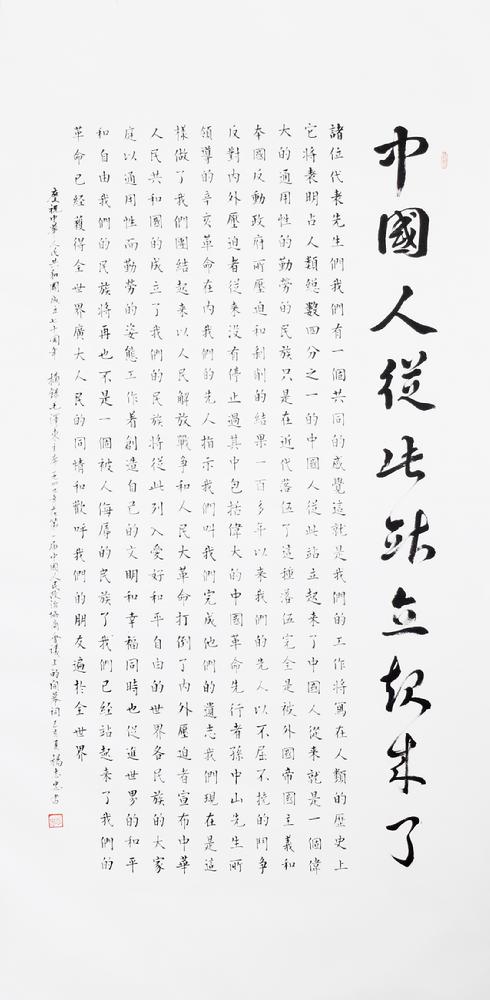 中國人從此站立起来了
諸位代表先生們我們有一個共同的感覺這就是我們的工作將寫在人類的歷史上
它將表明占人類總數四分之一的中國人從此站立起来了中國人從来就是一個偉
大的通用性的勤勞的民族只是在近代落伍了這種落伍完全是被外國帝國主義和
本國反動政府所壓迫和剥削的結果一百多年以来我們的先人以不屈不撓的鬥爭
反對内外壓迫者從来没有停止過其中包括偉大的中國革命先行者孫中山先生所
領導的辛亥革命在内我們的先人指示我們叫我們完成他們的遺志我們現在是這
樣做了我們團結起来以人民解放戰爭和人民大革命打倒了内外壓迫者宣布中華
人民共和國的成立了我們的民族將從此列入愛好和平自由的世界各民族的大家
庭以通用性而勤勞的姿態工作著創造自己的文明和幸福同時也促進世界的和平
和自由我們的民族將再也不是一個被人侮辱的民族了我們已經站起来了我們的
革命已經獲得全世界廣大人民的同情和歡呼我們的朋友遍於全世界
慶祝中華人民共和國成立七十周年 摘録毛澤東主席一九四九年在第一届中國人民政治協商會議上的開幕詞己亥夏楊志忠書